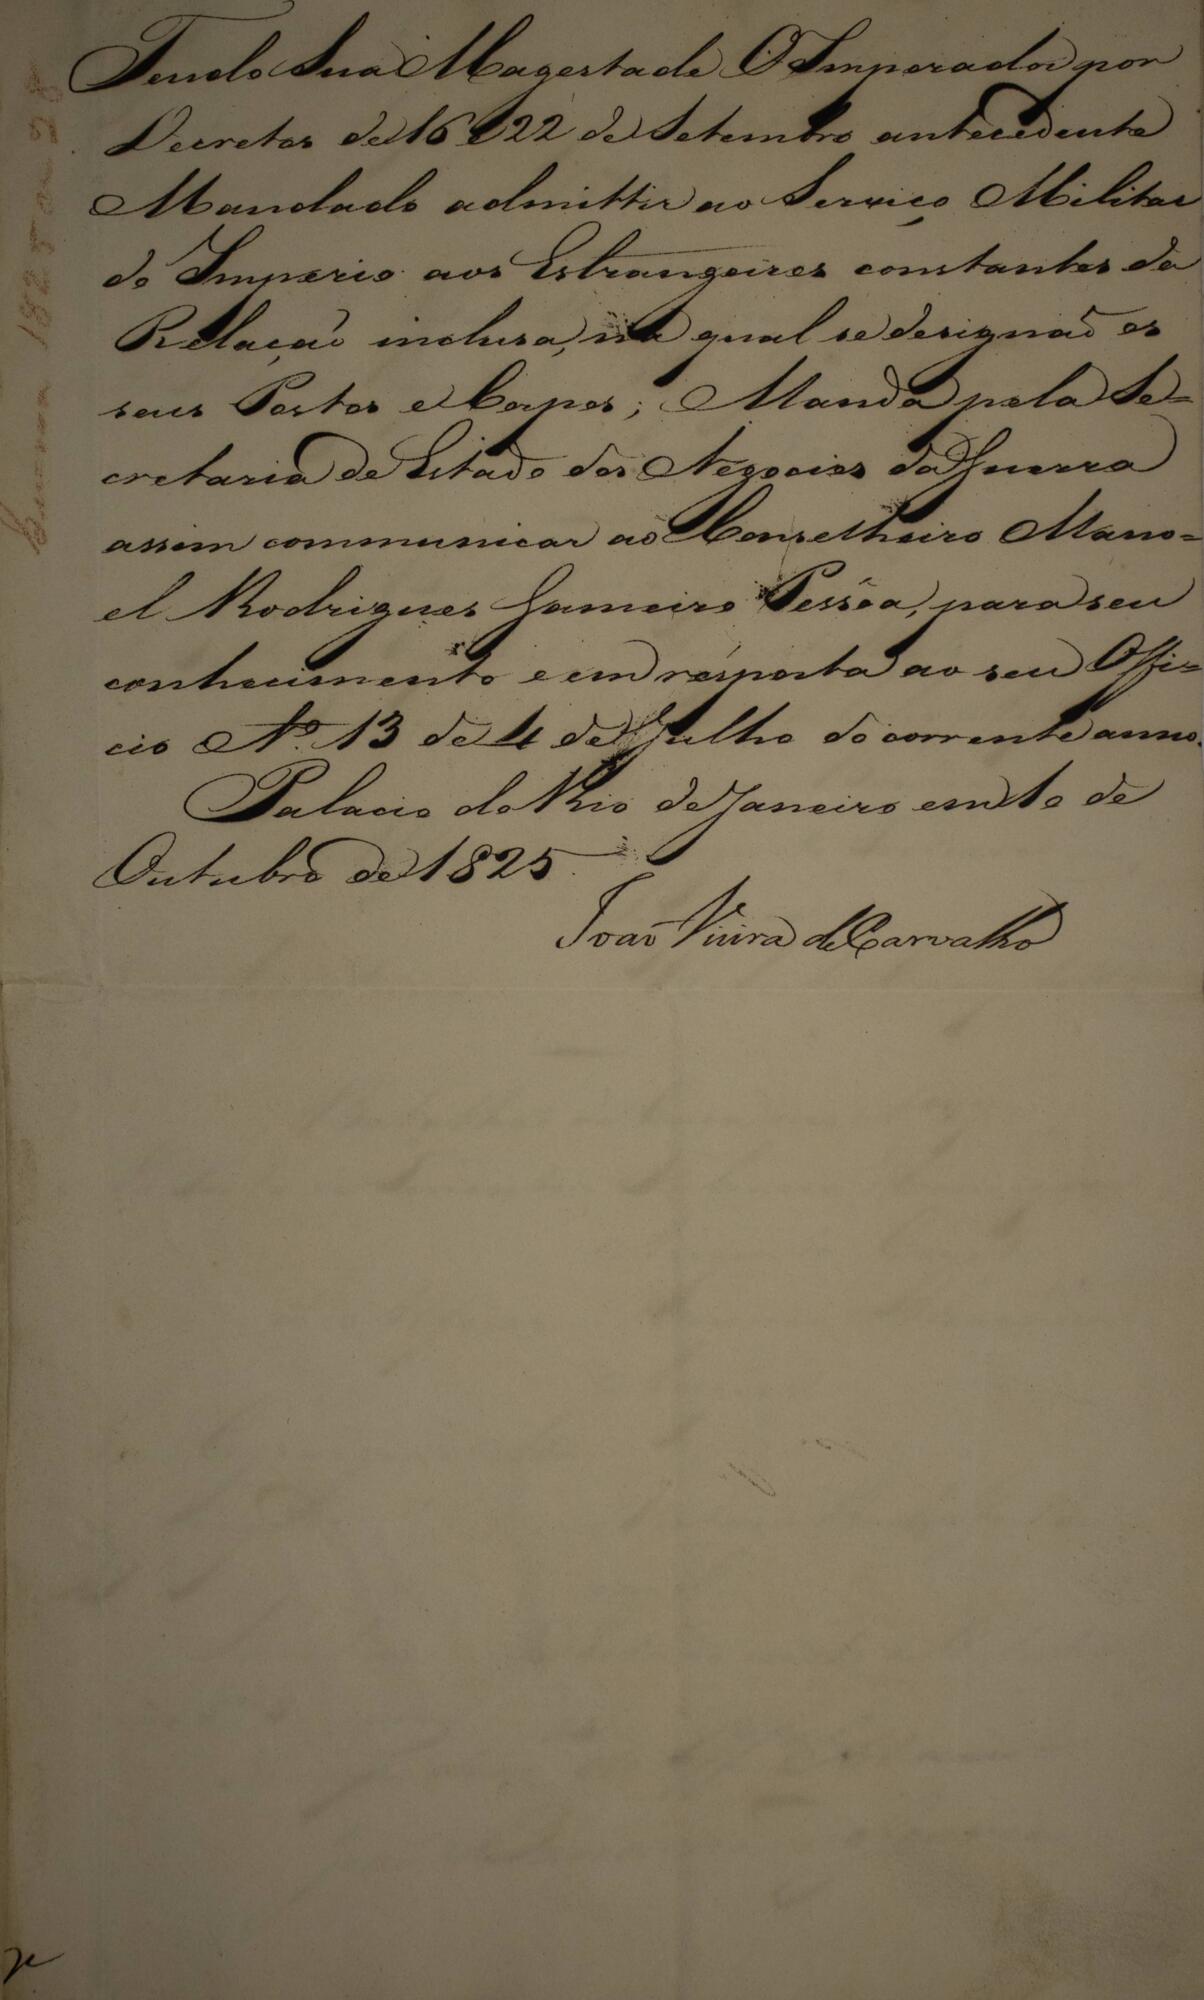 Tendo Sua Magestade O Imperador por
Decretos de 16 e 22 de Setembro antecedente
Mandado admittir ao Serviço Militar
do Imperio aos Estrangeiros constantes da
Relação inclusa, na qual se designaõ os
seus Postos e Corpos; Manda pela Se=
cretaria de Estado dos Negocios da Guerra
assim communicar ao Conselheiro Mano=
el Rodrigues Gameiro Pessôa, para seu
conhecimento e em resposta ao seu Offi=
cio Nº 13 de 4 de Julho do corrente anno.
Palacio do Rio de Janeiro em 1o de
Outubro de 1825
João Vieira de Carvalho
Guerra 1825